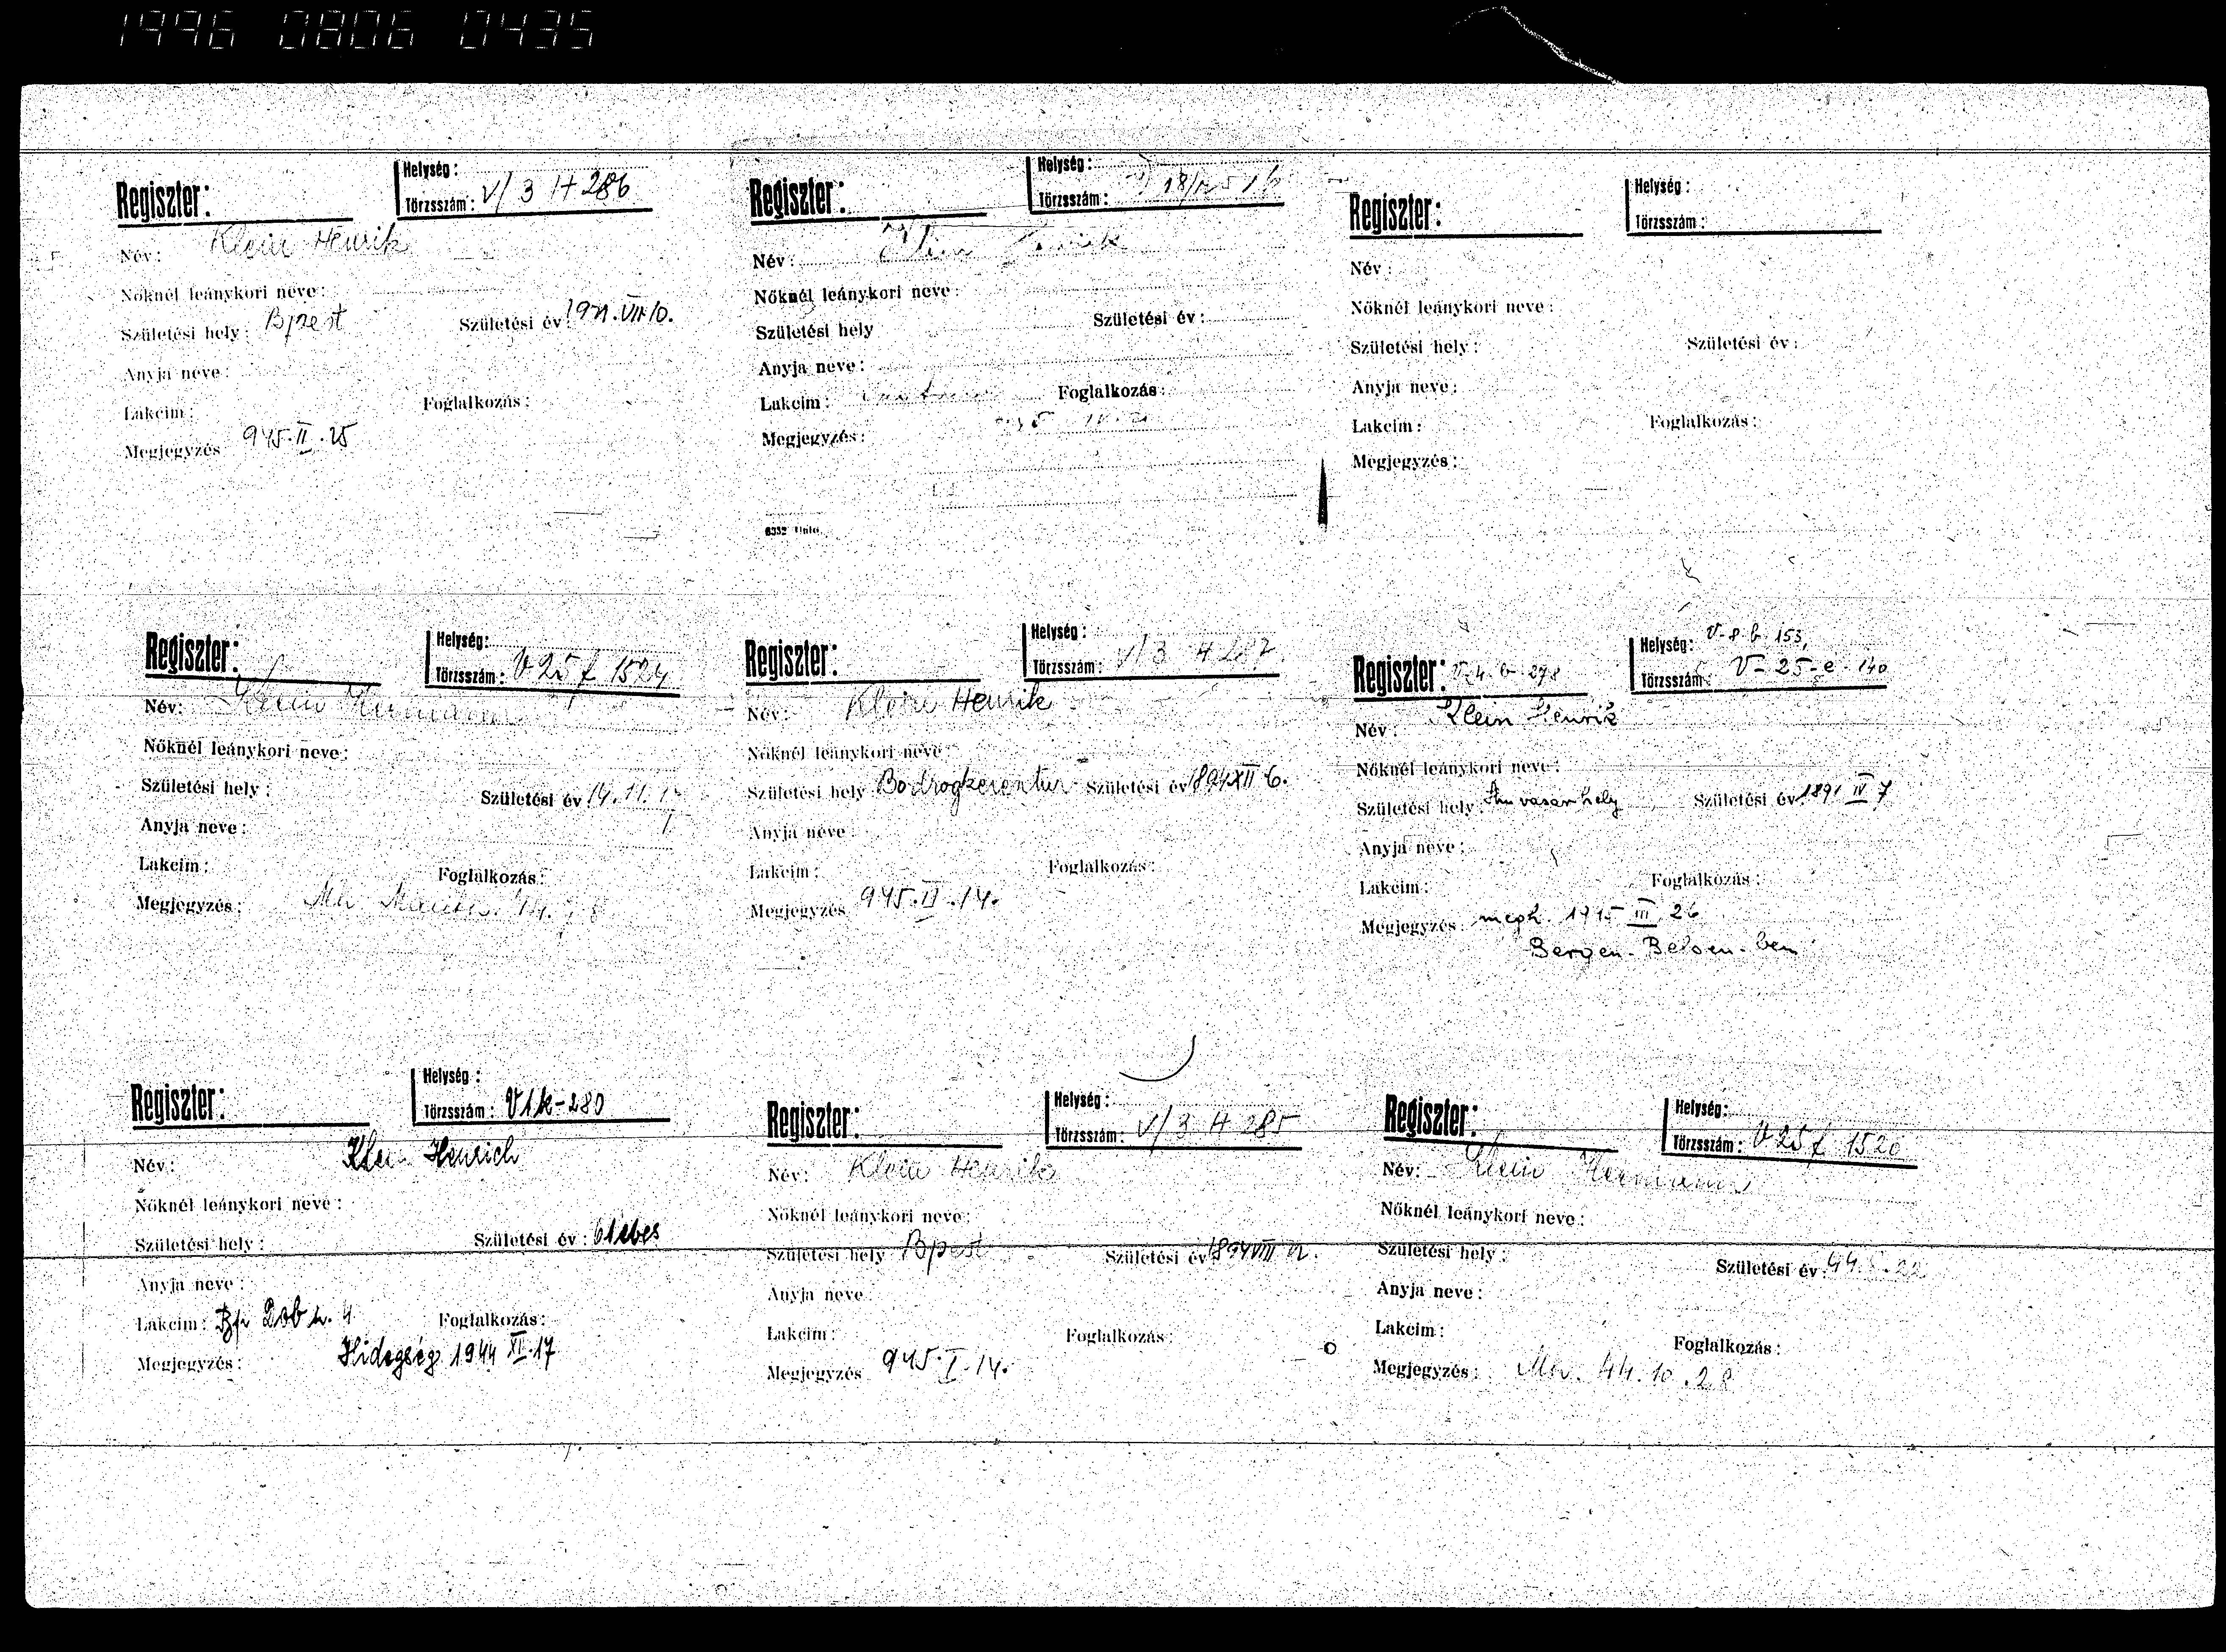 1996 0806 0435
Regiszter:
Helység:
Törzsszám: V/3 H 286
Név: Klein Henrik
Nőknél leánykori neve:
Születési hely: Bpest Születési év:
Anyja neve:
Lakcim: Foglalkozás:
Megjegyzés 945.II.25
Regiszter:
Helység:
Törzsszám:
Név:
Nőknél leánykori neve:
Születési hely Születési év:
Anyja neve:
Lakcim: Foglalkozás:
Megjegyzés:
Regiszter:
Helység:
Törzsszám:
Név:
Nőknél leánykori neve:
Születési hely: Születési év:
Anyja neve:
Lakcim: Foglalkozás:
Megjegyzés:
Regiszter:
Helység:
Törzsszám: V 25 f 1524
Név: Klein Hermann
Nőknél leánykori neve:
Születési hely: Születési év
Anyja neve:
Lakcim: Foglalkozás:
Megjegyzés:
Regiszter:
Helység:
Törzsszám: V/3 H 287
Név: Klein Henrik
Nőknél leánykori neve
Születési hely Bodrogkeresztur Születési év 1894 XII 6.
Anyja neve:
Lakcim: Foglalkozás:
Megjegyzés 945.II.14.
Regiszter: V-4-b-298
Helység: V-8-b-153,
Törzsszám: V-25-e-140
Név: Klein Henrik
Nőknél leánykori neve:
Születési hely: Születési év: 1891 IV 7
Anyja neve:
Lakcim: Foglalkozás:
Megjegyzés: megh. 1945 III. 26
Bergen-Belsen-ben
Regiszter:
Helység:
Törzsszám: V1k-280
Név: Klein Henrich
Nőknél leánykori neve:
Születési hely: Születési év: 61 éves
Anyja neve:
Lakcim: Bp Dob u. 4 Foglalkozás:
Megjegyzés: Hidegség 1944 XI.17
Regiszter:
Helység:
Törzsszám: V/3 H 285
Név: Klein Henrik
Nőknél leánykori neve:
Születési hely Bpest Születési év
Anyja neve
Lakcim: Foglalkozás:
Megjegyzés 945.I.14.
Regiszter:
Helység:
Törzsszám: V 25 f 1520
Név: Klein Hermann
Nőknél leánykori neve:
Születési hely: Születési év:
Anyja neve:
Lakcim: Foglalkozás:
Megjegyzés: Mn. 44.10.28